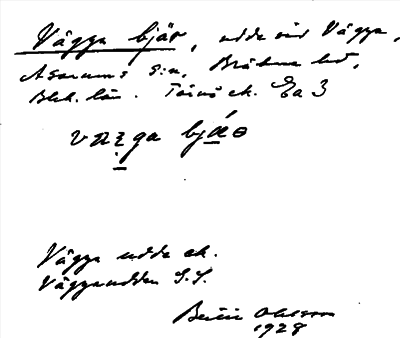 Vägga bjär, udde vid Vägga,
Asarums s:n, Bräkne hd,
Blek. län. Törnö ek. Ea 3
Vägga udde ek.
Väggaudden S.S.
Bertil Ohlsson
1928